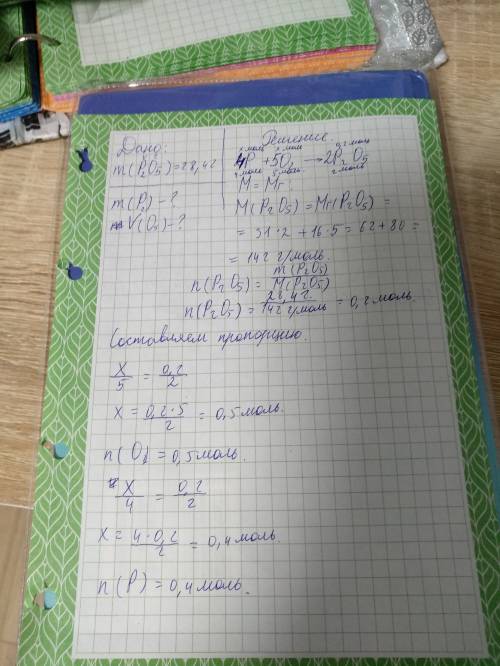 Дано:
m(P₂O₅)=28,4г
m(P) - ?
V(O₂) - ?
Решение.
x моль x моль 0,2 моль
4P + 5O₂ → 2P₂O₅
4 моль 5 моль 2 моль
M = Mr
M(P₂O₅) = Mr(P₂O₅) =
= 31·2 + 16·5 = 62 + 80 =
= 142 г/моль.
n(P₂O₅) = m(P₂O₅)/M(P₂O₅)
n(P₂O₅) = 28,4 г./142 г/моль = 0,2 моль
Составляем пропорцию.
x/5 = 0,2/2
x = 0,2·5/2 = 0,5 моль.
n(O₂) = 0,5 моль.
x/4 = 0,2/2
x = 4·0,2/2 = 0,4 моль.
n(P) = 0,4 моль.